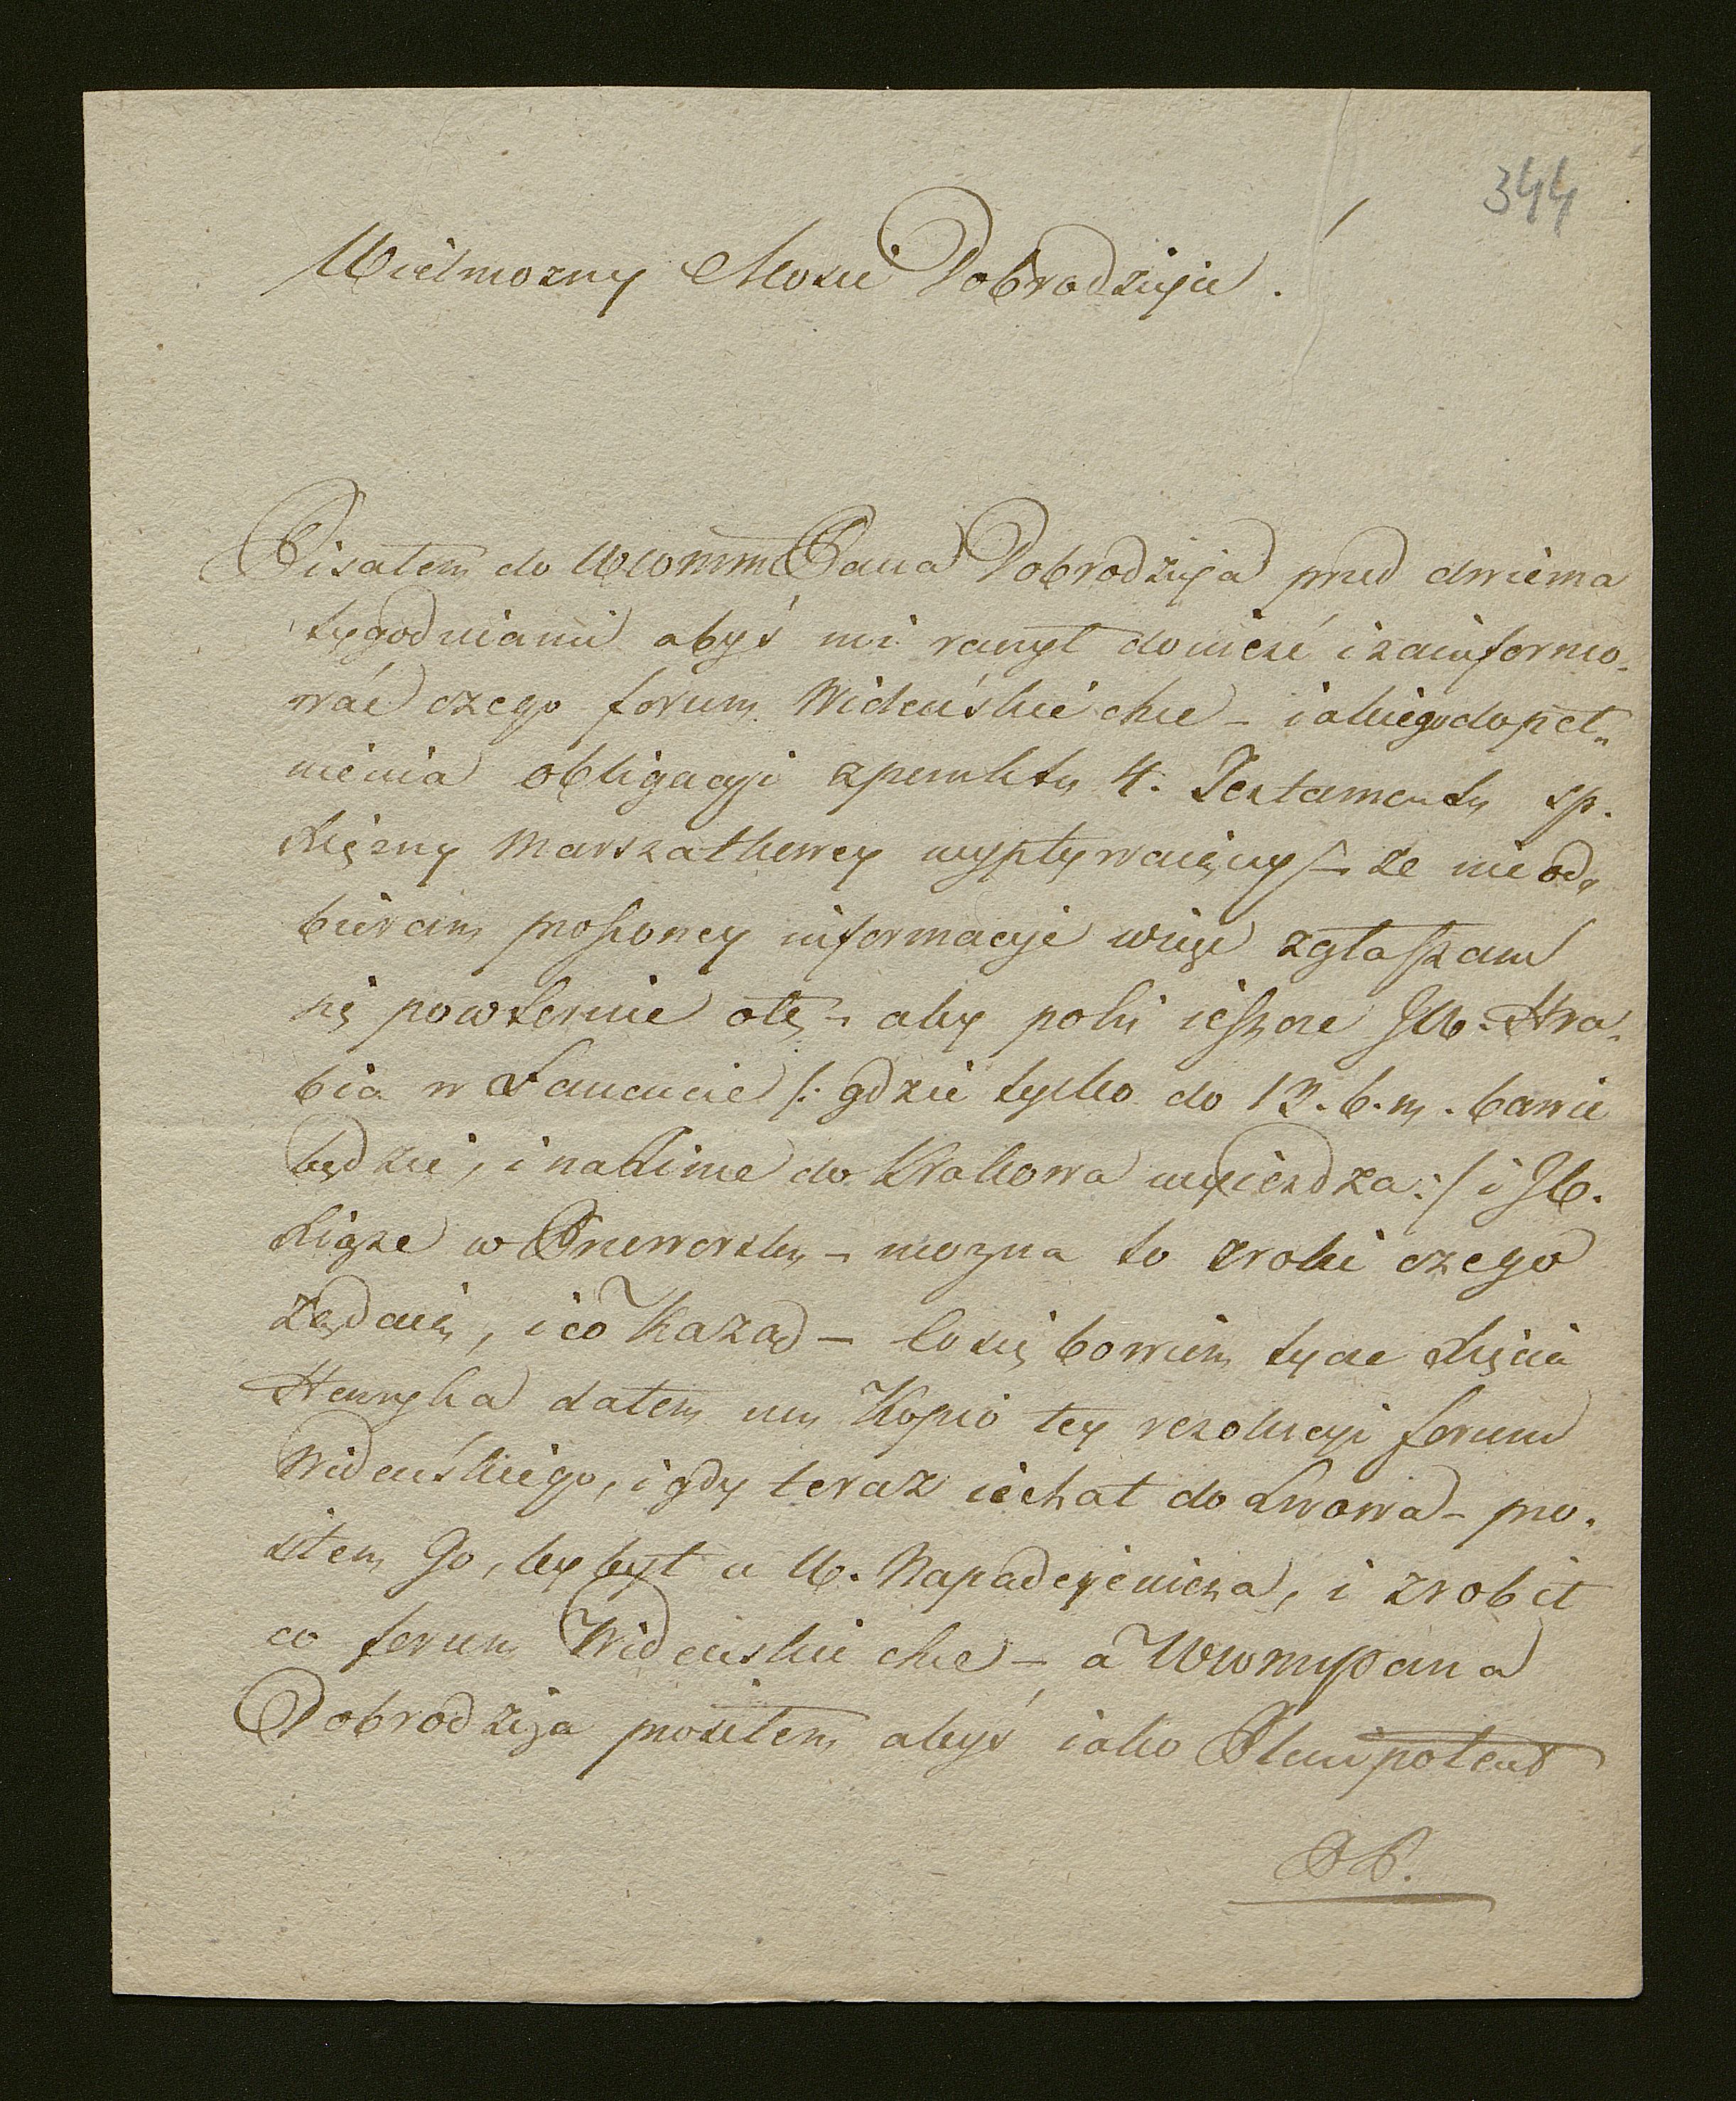 344
Wielmożny Mości Dobrodzieju.
Pisałem do WWMM Pana Dobrodzieja przed dwiema
tygodniami abyś mi raczył donieść i zainformo-
wać czego forum Wideńskie chce – iakiego dopeł-
nienia obligacyi z punktu 4. Testamentu sp.
Xiężny Marszałkowey wypływaiącey – że nie od-
bieram proszoney informacyi więc zgłaszam
się powtórnie o tę – aby poki ieszcze JW. Hra-
bia w Łancucie /: gdzie tylko do 13. b. m. bawić
będzie, i na zimę do Krakowa wyieżdza :/ i JO.
Xiąże w Przeworsku – można to zrobić czego
żądaią, i co każą – Co się bowiem tycze Xięcia
Henryka dałem mu Kopią tey rezolucyi forum
Wideńskiego, i gdy teraz iechał do Lwowa – pro-
siłem Go, by był u W. Napadyiewicza, i zrobił
co forum Wideńskie chce – a WWMPana
Dobrodzieja prosiłem abyś iako Plenipotent